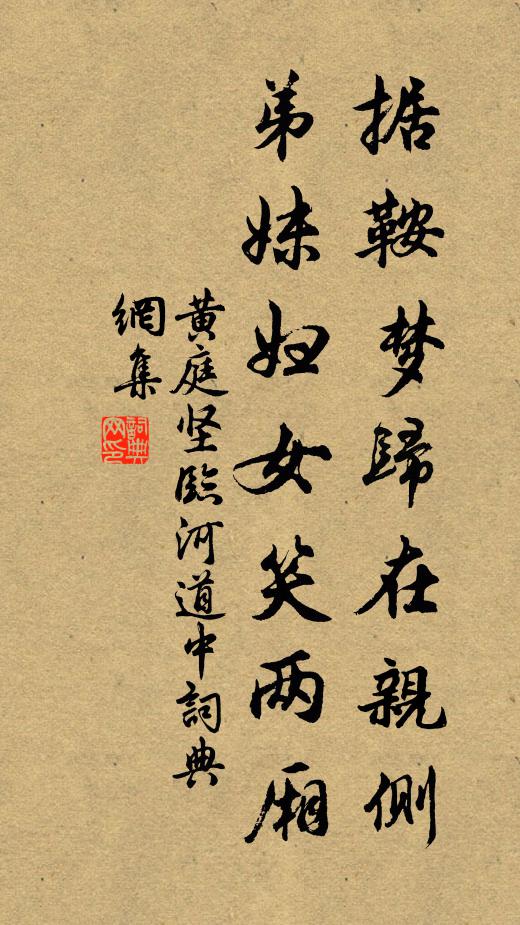 据鞍梦歸在親側
弟妹妇女笑两厢
黄庭坚臨河道中詞典
網集
詞典
网印